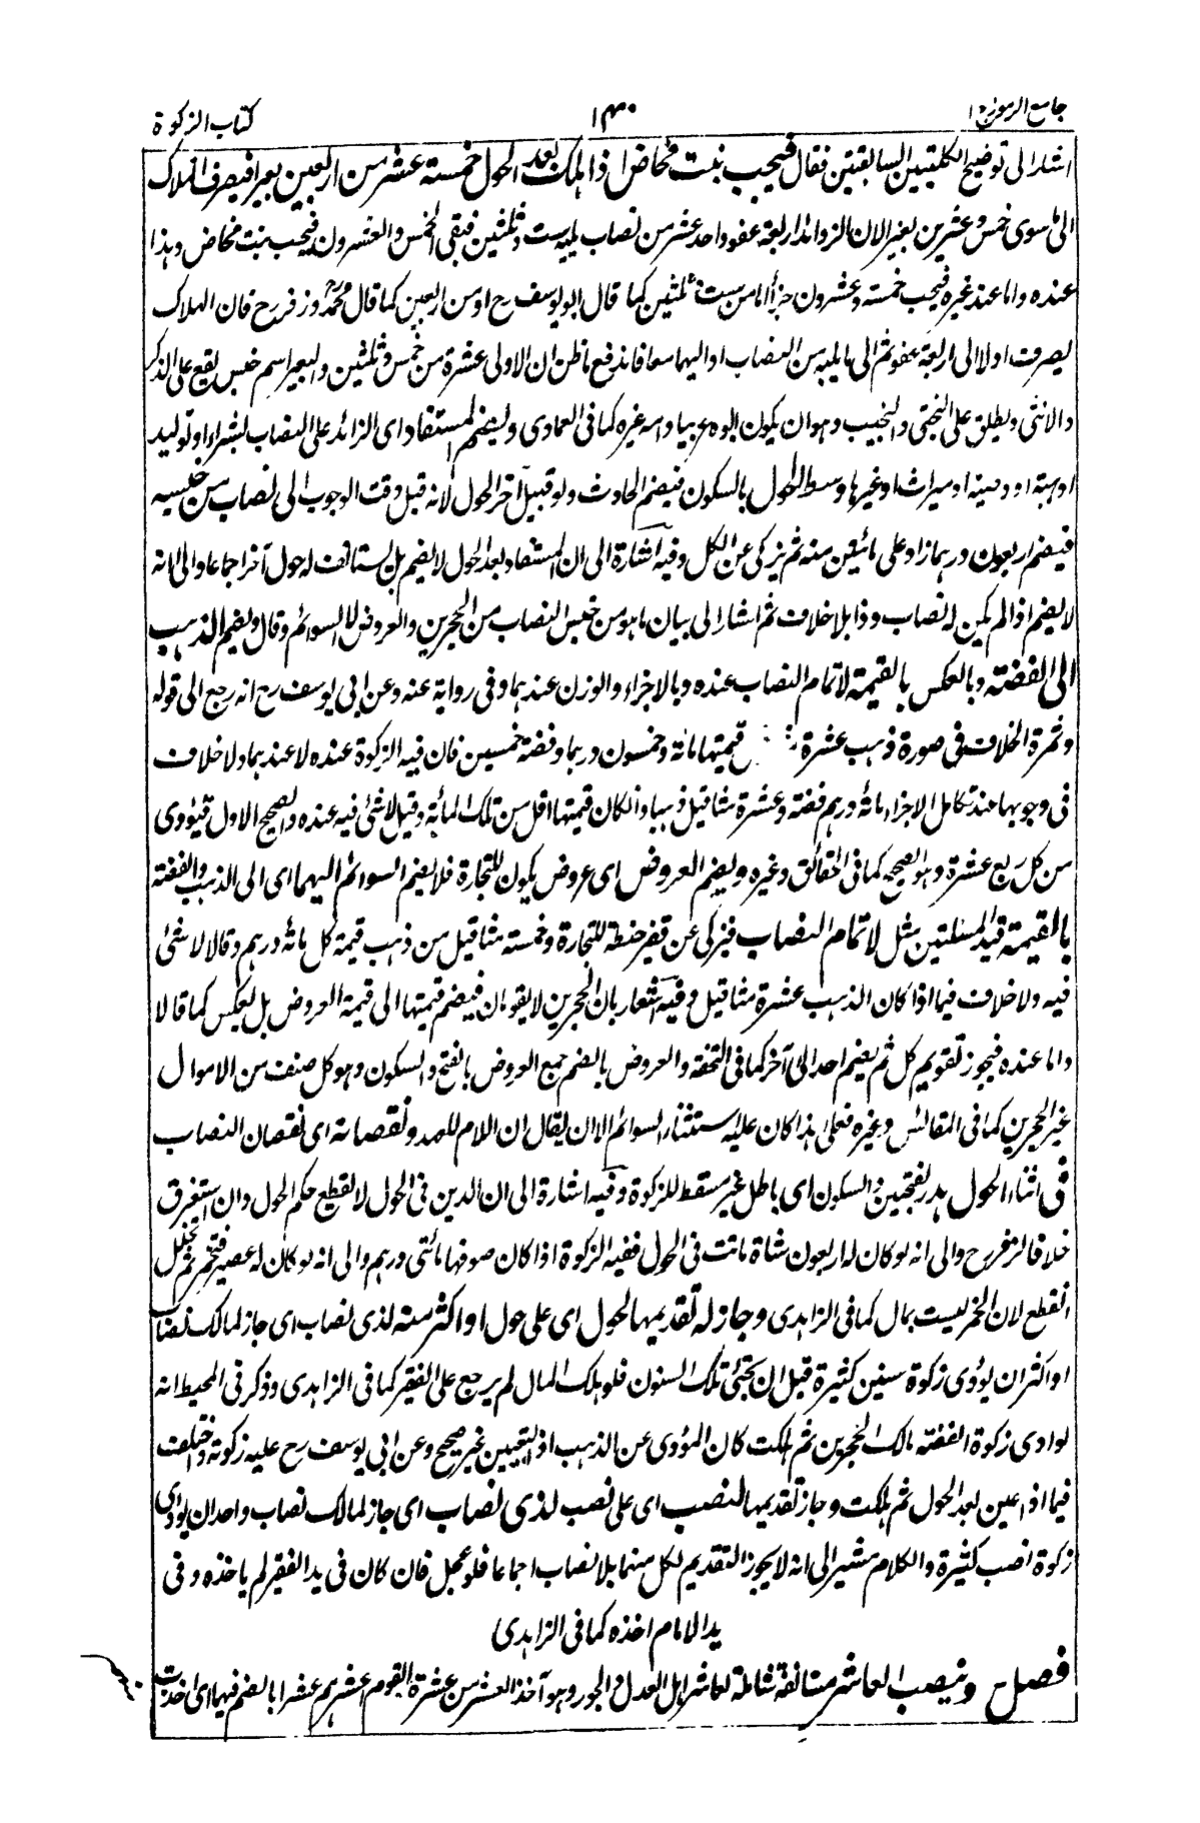 جامع الرموز ج ١
١٣٠
كتاب الزكوة
اشار الى توضيح الكليتين السابقتين فقال فيجب بنت مخاض اذا هلك بعد الحول خمسة عشر من اربعين بعيرا فيصرف الهلاك
الى ما سوى خمس وعشرين بعيرا لان الزوائد اربعة عفو واحد عشر من نصاب يليه ست وثلثين فبقى الخمس والعشرون فيجب بنت مخاض وهذا
عنده واما عند غيره فيجب خمسة وعشرون جزأ اما من ستة وثلثين كما قال ابو يوسف رح او من اربعين كما قال محمد وزفر رح فان الهلاك
يصرف اولا الى اربعة عفو ثم الى ما يليه من النصاب او اليهما معا فاندفع ما ظن ان الاولى عشرة من خمس وثلثين والبعير اسم جنس يقع على الذكر
والانثى ويطلق على البختى والنجيب وهو ان يكون ابوه عربيا وامه غيره كما فى العمادى ويضم المستفاد اى الزائد على النصاب بشراء او توليد
او هبة او وصية او ميراث او غيرها وسط الحول بالسكون فيضم الحادث ولو قبيل آخر الحول لانه قبل وقت الوجوب الى نصاب من جنسه
فيضم اربعون درهما زاد على مائتين منه ثم يزكى عن الكل وفيه اشارة الى ان المستفاد بعد الحول لا يضم بل يستانف له حول آخر اجماعا والى انه
لا يضم اذا لم يكن له نصاب وذا بلا خلاف ثم اشار الى بيان ما هو من جنس النصاب من الحجرين والعروض لا السوائم وقال ويضم الذهب
الى الفضة وبالعكس بالقيمة لاتمام النصاب عنده وبالاجزاء والوزن عندهما وفى رواية عنه وعن ابى يوسف رح انه رجع الى قوله
وثمرة الخلاف فى صورة ذهب عشرة قيمتها مائة وخمسون درهما وفضة خمسين فان فيه الزكوة عنده لا عندهما ولا خلاف
فى وجوبها عند تكامل الاجزاء مائة درهم فضة وعشرة مثاقيل ذهبا وانكان قيمتها اقل من تلك المائة وقيل لا شئ فيه عنده والصحيح الاول فيؤدى
من كل ربع عشرة وهو الصحيح كما فى الحقائق وغيره ويضم العروض اى عروض يكون للتجارة فلا يضم السوائم اليهما اى الى الذهب والفضة
بالقيمة قيد المسئلتين مثل لاتمام النصاب فيزكى عن قفيز حنطة للتجارة وخمسة مثاقيل من ذهب قيمة كل مائة درهم وقالا لا شئ
فيه ولا خلاف فيما اذا كان الذهب عشرة مثاقيل وفيه اشعار بان الحجرين لا يقومان فيضم قيمتها الى قيمة العروض بل بعكس كما قالا
واما عنده فيجوز تقويم كل ثم يضم احد الى آخر كما فى التحفة والعروض بالضم جمع العروض بالفتح والسكون وهو كل صنف من الاموال
غير الحجرين كما فى المقائيس وغيره فعلى هذا كان عليه استثناء السوائم الا ان يقال ان اللام للعهد ونقصانه اى نقصان النصاب
فى اثناء الحول هدر بفتحتين والسكون اى باطل غير مسقط للزكوة وفيه اشارة الى ان الدين فى الحول لا يقطع حكم الحول وان استغرق
خلافا لزفر رح والى انه لو كان له اربعون شاة ماتت فى الحول ففيه الزكوة اذا كان صوفها مائتى درهم والى انه لو كان له عصير فتخمر ثم تخلل
انقطع لان الخمر ليست بمال كما فى الزاهدى وجاز له تقديمها لحول اى على حول او اكثر منه لذى نصاب اى جاز لمالك نصاب
او اكثر ان يؤدى زكوة سنين كثيرة قبل ان يجئ تلك السنون فلو هلك المال لم يرجع على الفقير كما فى الزاهدى وذكر فى المحيط انه
لو ادى زكوة الفضة مالك الحجرين ثم هلكت كان المؤدى عن الذهب اذ التعيين غير صحيح وعن ابى يوسف رح عليه زكوته واختلفت
فيما اذا عين بعد الحول ثم هلكت وجاز تقديمها لنصب اى على نصب لذى نصاب اى جاز لمالك نصاب واحد ان يؤدى
زكوة نصب كثيرة والكلام مشير الى انه لا يجوز التقديم لكل منهما بلا نصاب اجماعا فلو عجل فان كان فى يد الفقير لم ياخذه وفى
يد الامام اخذه كما فى الزاهدى
فصل وينصب العاشر مستانفة شاملة لعاشر اهل العدل والجور وهو آخذ العشر من عشرة القوم اعشرهم عشرا بالضم فيهما اى اخذت